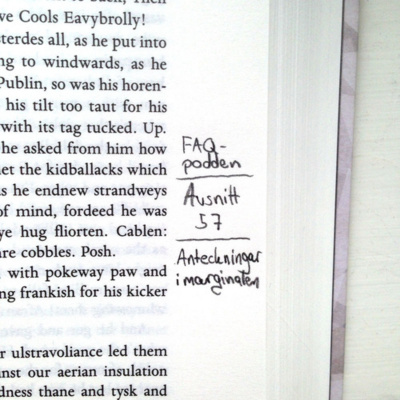 ve Cools Eavybrolly!
terdes all, as he put into
ng to windwards, as he
Publin, so was his horen-
his tilt too taut for his
with its tag tucked. Up.
he asked from him how
et the kidballacks which
s he endnew strandweys
of mind, fordeed he was
ye hug fliorten. Cablen:
are cobbles. Posh.
with pokeway paw and
ng frankish for his kicker
r ulstravoliance led them
nst our aerian insulation
dness thane and tysk and
FAQ-
podden
Avsnitt
57
Anteckningar
i marginalen